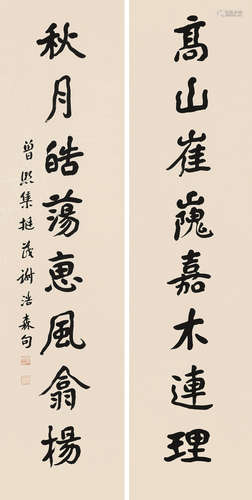 高山崔巍嘉木連理
秋月皓蕩惠風翕揚
曾熙集挺茂謝浩森句